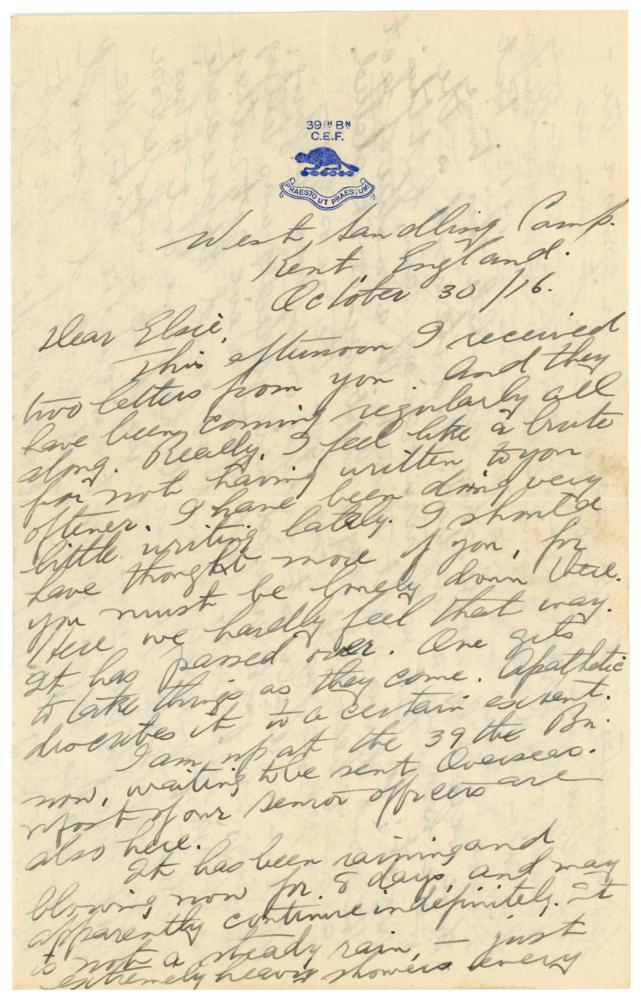 39TH BN
C.E.F.
PRAESTO UT PRAESTUM
West Sandling Camp.
Kent, England.
October 30/16.
Dear Elsie,
This afternoon I received
two letters from you. And they
have been coming regularly all
along. Really, I feel like a brute
for not having written to you
oftener. I have been doing very
little writing lately. I should
have thought more of you, for
you must be lonely down there.
Here we hardly feel that way.
It has passed over. One gets
to take things as they come. Apathetic
discribes it to a certain extent.
I am up at the 39the Bn.
now, waiting to be sent Overseas.
Most of our senior officers are
also here.
It has been raining and
blowing now for 8 days and may
apparently continue indefinitely. It
is not a steady rain, — just
extremely heavy showers every